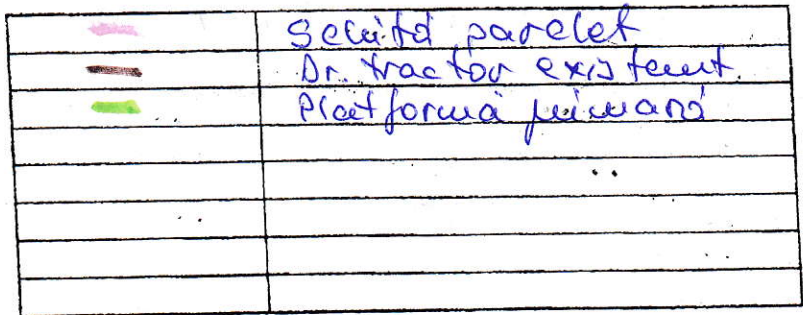 Schiță parchet
Dr. tractor existent.
Platformă primară